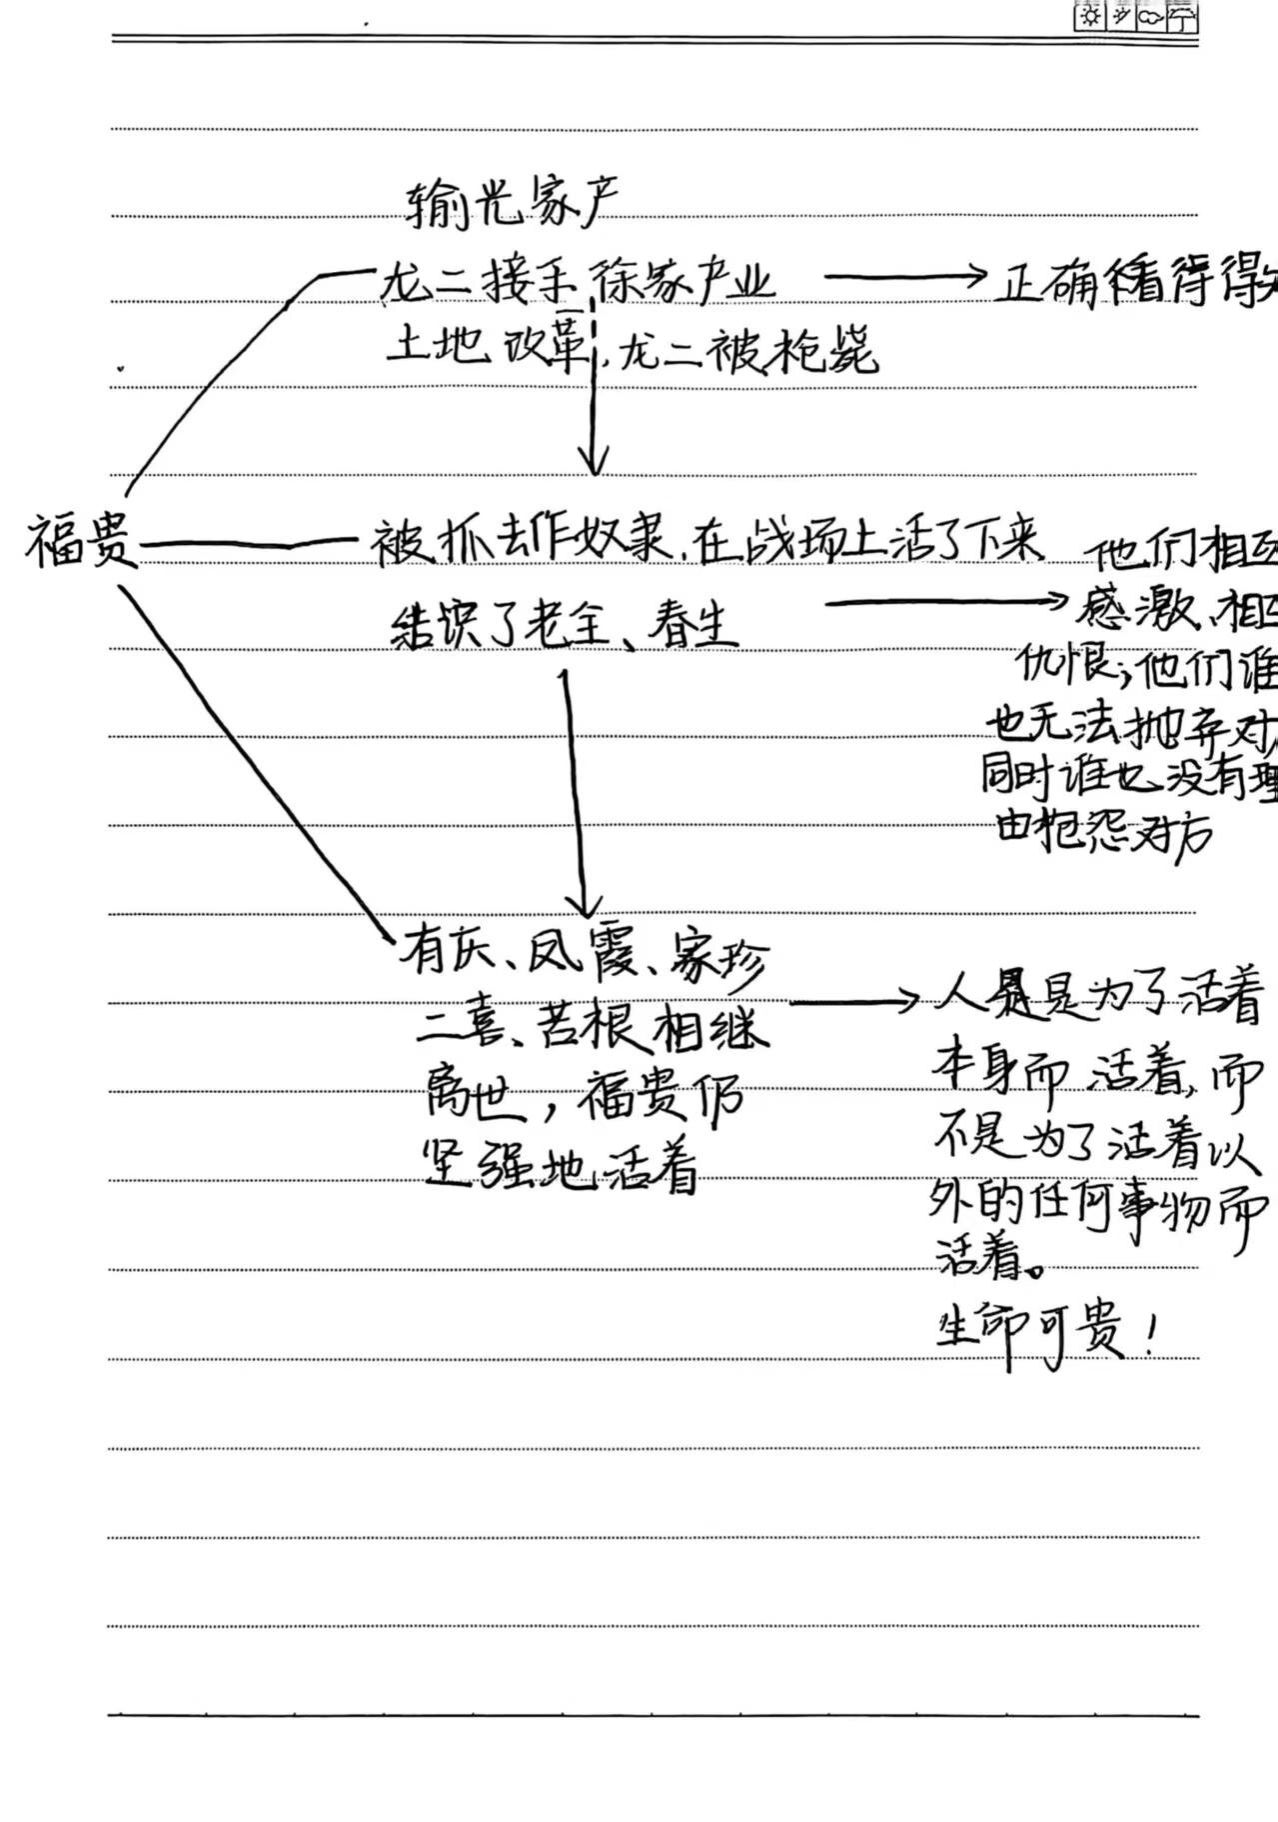 输光家产
龙二接手徐家产业
正确看待得
土地改革,龙二被枪毙
福贵
被抓去作奴隶,在战场上活了下来
结识了老全、春生
他们相互
感激、相互
仇恨;他们谁
也无法抛弃对
同时谁也没有理
由抱怨对方
有庆、凤霞、家珍
二喜、苦根相继
离世,福贵仍
坚强地活着
人是为了活着
本身而活着,而
不是为了活着以
外的任何事物而
活着。
生命可贵!